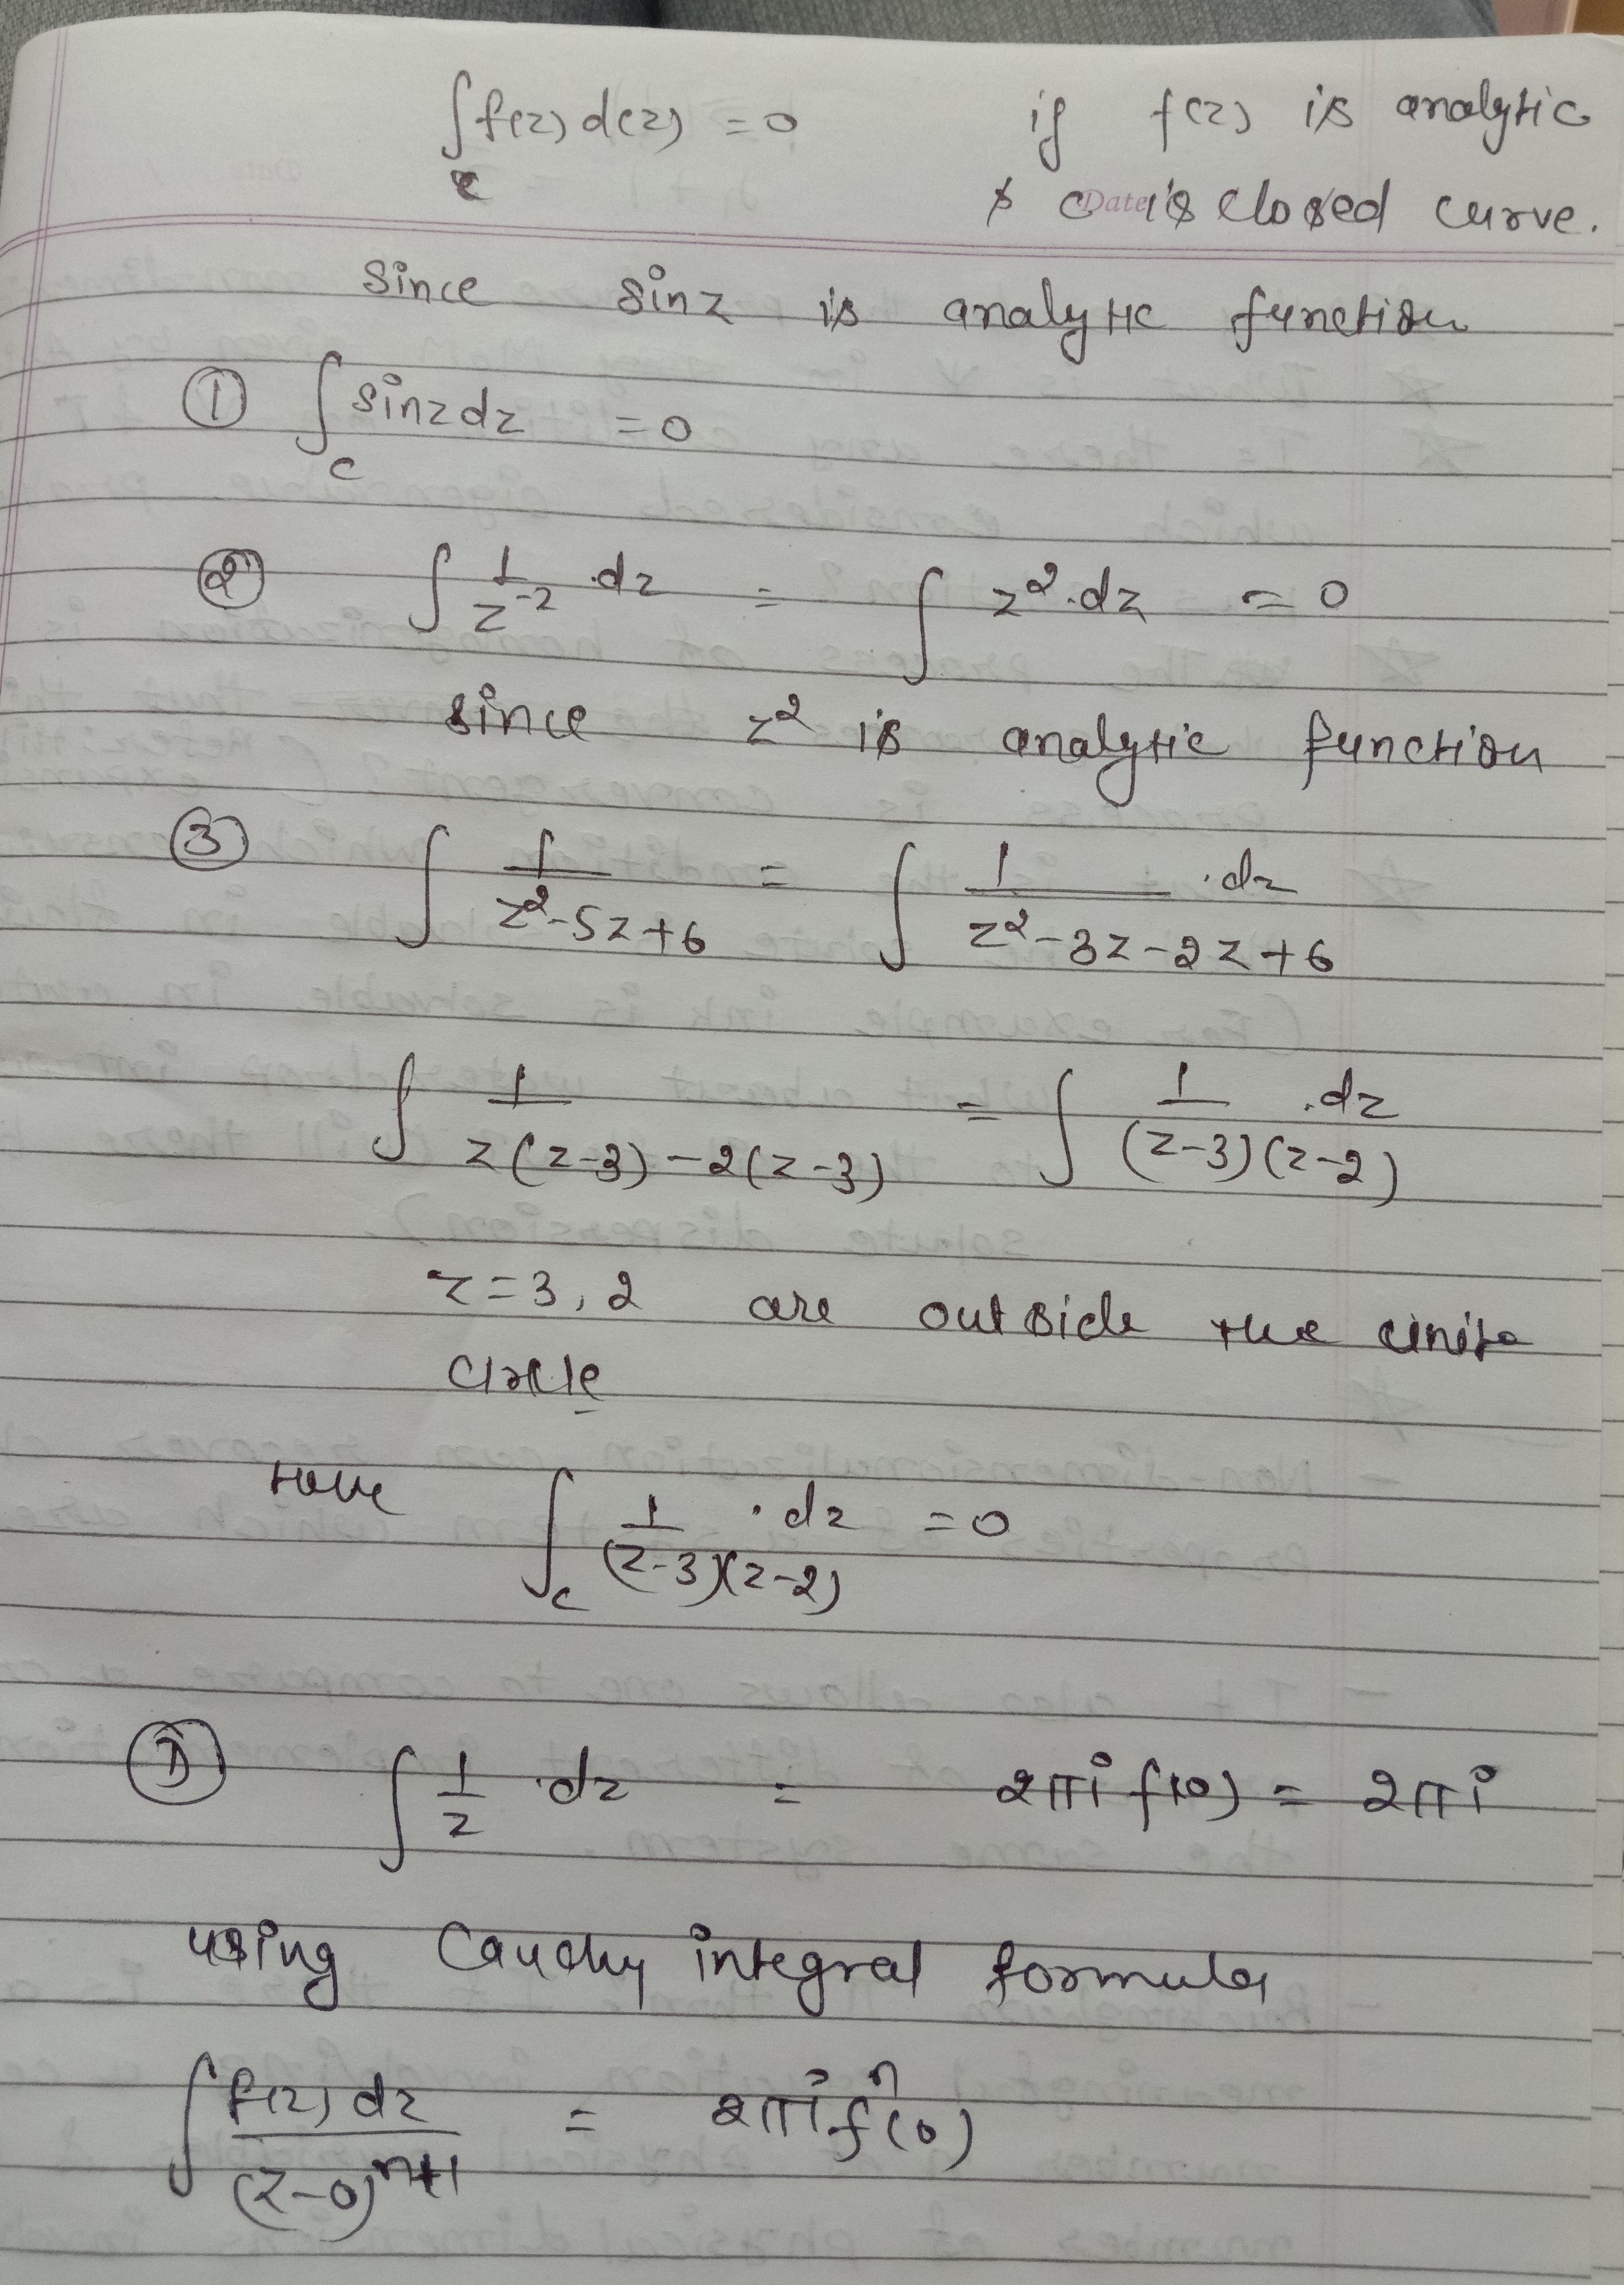 ∫_c f(z) d(z) = 0 if f(z) is analytic
& c is closed curve.
Date
Since sinz is analytic function
① ∫_c sinz dz = 0
② ∫ 1/z^-2 .dz = ∫ z^2.dz = 0
since z^2 is analytic function
③ ∫ 1/(z^2-5z+6) = ∫ 1/(z^2-3z-2z+6) .dz
∫ 1/(z(z-3)-2(z-3)) = ∫ 1/((z-3)(z-2)) .dz
z=3,2 are outside the unite
circle
∫_c 1/((z-3)(z-2)) .dz = 0
∫ 1/z .dz = 2πi f(0) = 2πi
using Cauchy integral formula
∫ f(z) dz/(z-0)^n+1 = 2πi f^n(0)